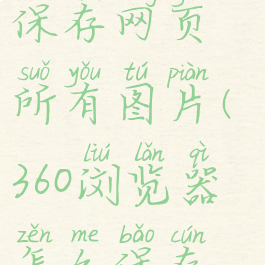 保存网页
suǒ yǒu tú piàn
所有图片(
liú lǎn qì
360浏览器
zěn me bǎo cún
怎么保存